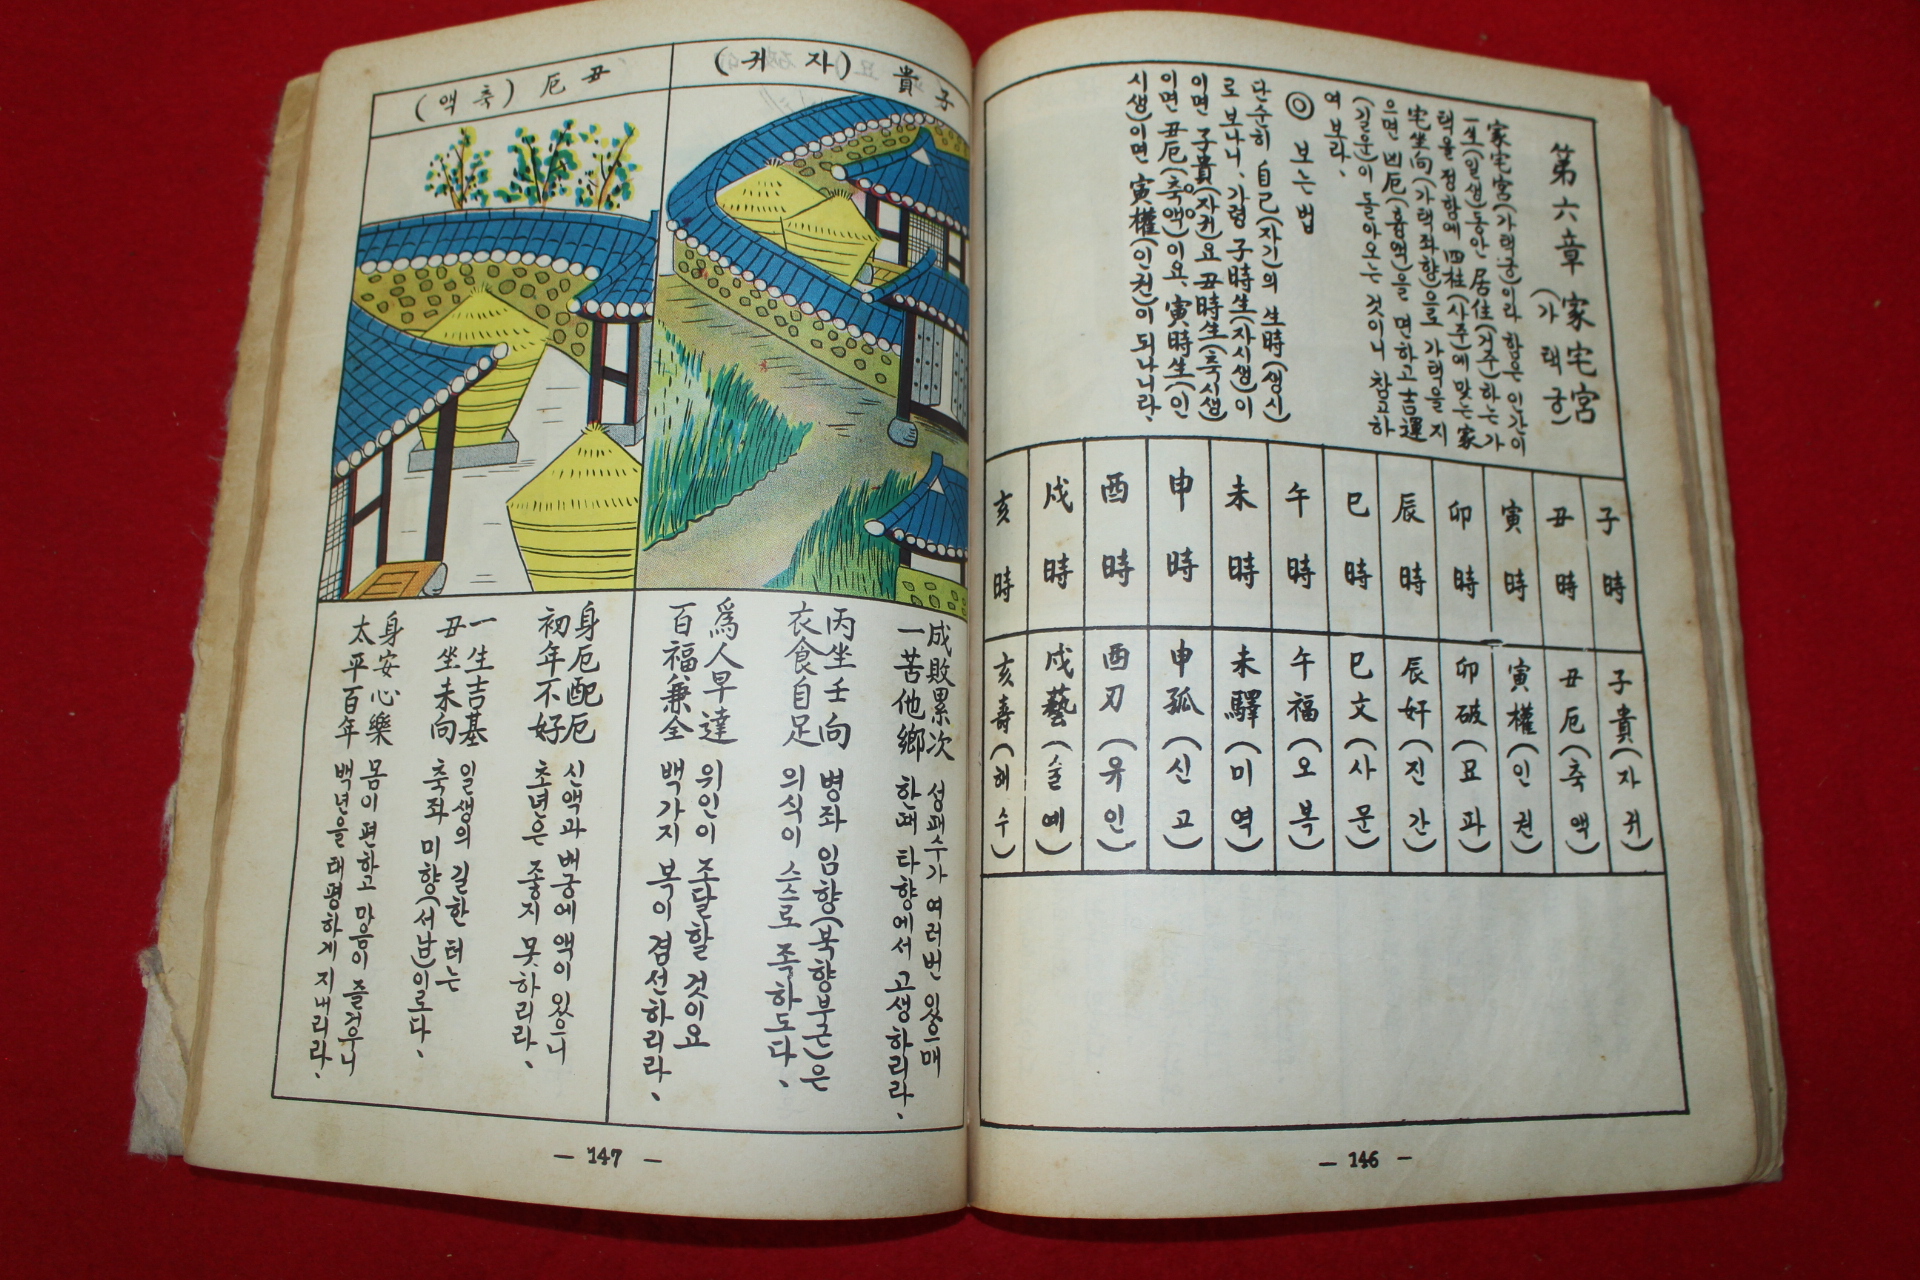 第六章 家宅宮
(가택궁)
家宅宮(가택궁)이라 함은 인간이
一生(일생)동안 居住(거주)하는 가
택을 정함에 四柱(사주)에 맞는 家
宅坐向(가택좌향)으로 가택을 지
으면 凶厄(흉액)을 면하고 吉運
(길운)이 돌아오는 것이니 참고하
여 보라、
◎ 보는법
단순히 自己(자기)의 生時(생신)
로 보나니、가령 子時生(자시생)이
이면 子貴(자귀)요 丑時生(축시생
이면 丑厄(축액)이요、寅時生(인
시생)이면 寅權(인권)이 되나니라、
子時 子貴(자귀)
丑時 丑厄(축액)
寅時 寅權(인권)
卯時 卯破(묘파)
辰時 辰奸(진간)
巳時 巳文(사문)
午時 午福(오복)
未時 未驛(미역)
申時 申孤(신고)
酉時 酉刃(유인)
戌時 戌藝(술예)
亥時 亥壽(해수)
— 146 —
子貴 (자귀)
成敗累次 성패수가 여러번 있으매
一苦他鄕 한때 타향에서 고생하리라、
丙坐壬向 병좌 임향(북향부근)은
衣食自足 의식이 스스로 족하도다、
爲人早達 위인이 조달할 것이요
百福兼全 백가지 복이 겸선하리라、
丑厄 (축액)
身厄配厄 신액과 배궁에 액이 있으니
初年不好 초년은 좋지 못하리라、
一生吉基 일생의 길한 터는
丑坐未向 축좌 미향(서남)이로다、
身安心樂 몸이 편하고 마음이 즐거우니
太平百年 백년을 태평하게 지내리라、
— 147 —